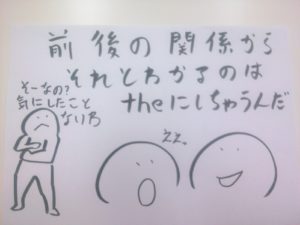 前後の関係から
それとわかるのは
theにしちゃうんだ
そーなの?
気にしたこと
ないわ
ええ。